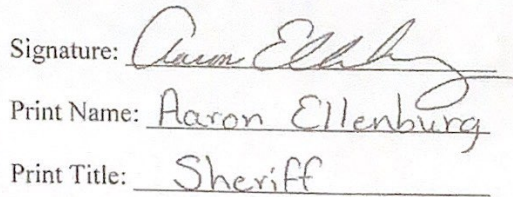 Signature: Aaron Ellenburg
Print Name: Aaron Ellenburg
Print Title: Sheriff